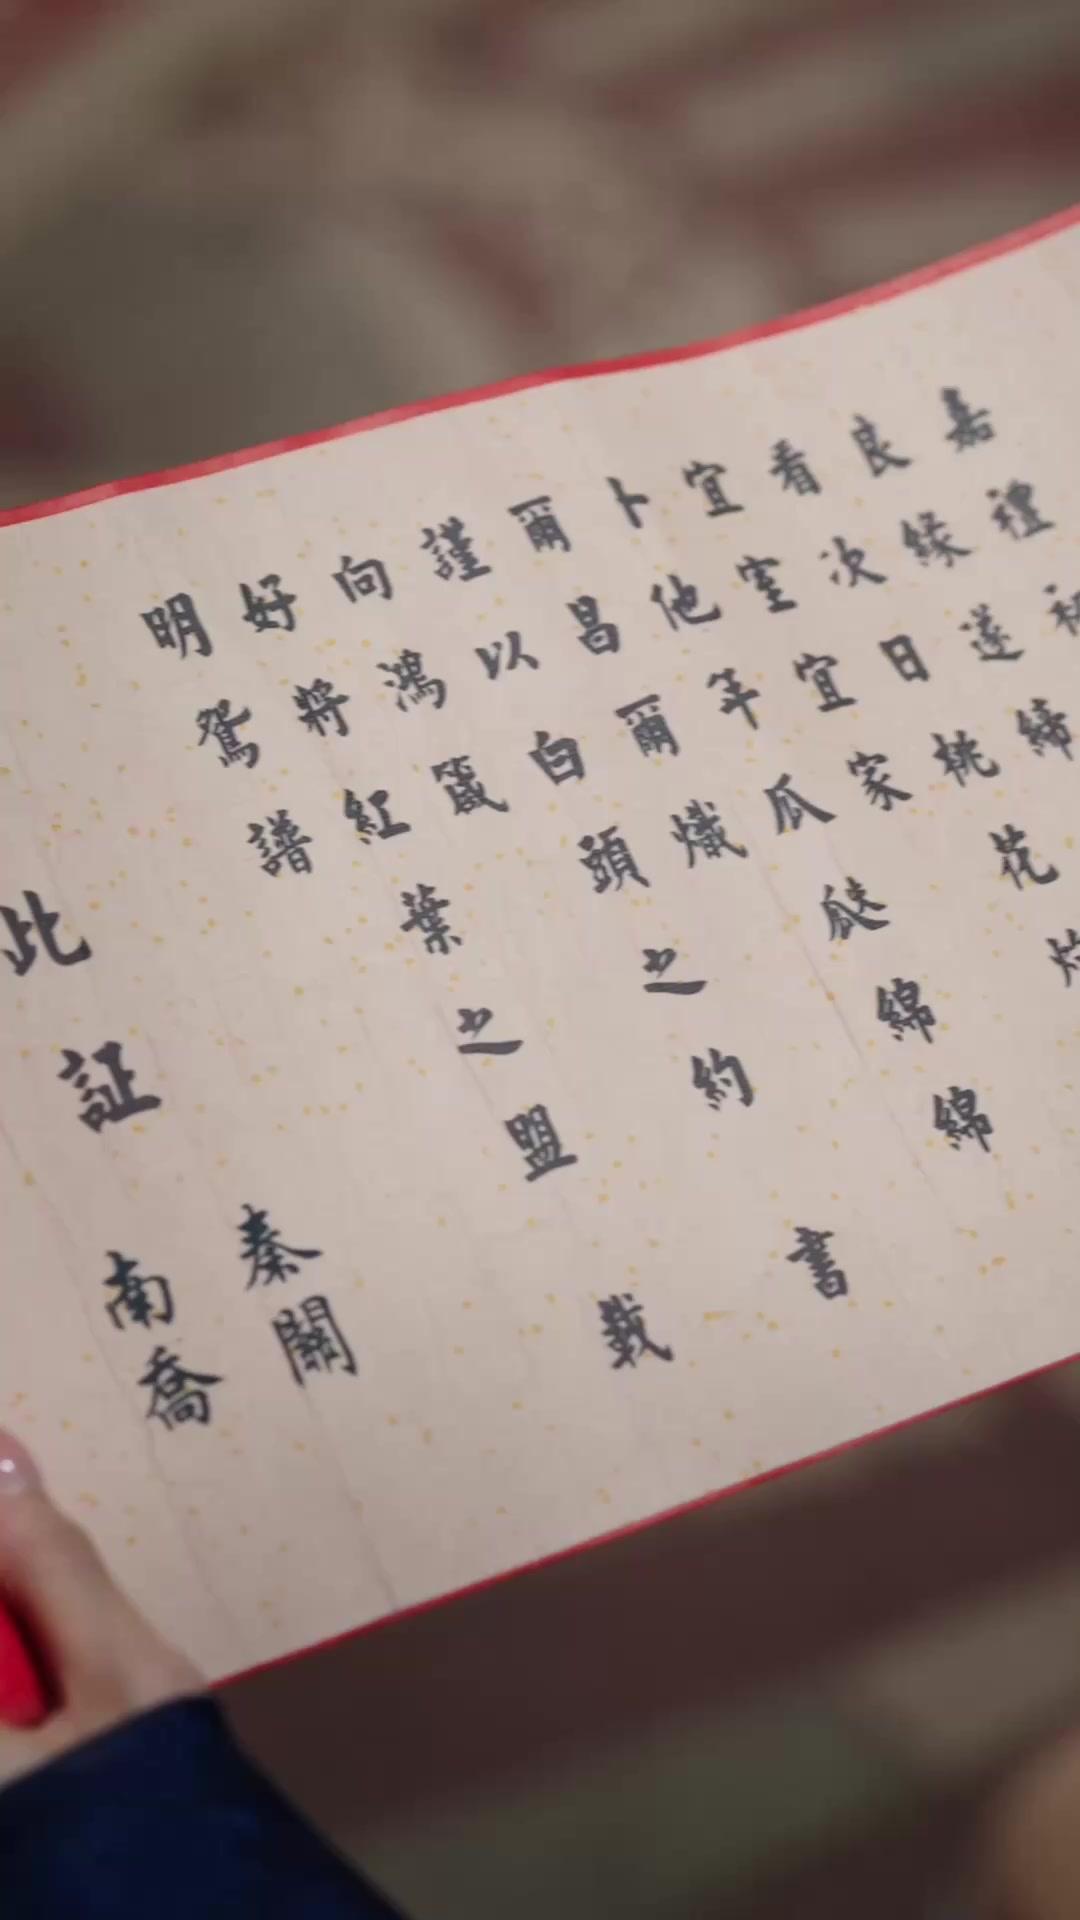 嘉禮
良緣遂締
看次日桃花灼
宜室宜家
卜他年瓜瓞綿綿
爾昌爾熾
謹以白頭之約書
向鴻箋
好將紅葉之盟載
明鴛譜
此証
秦關
南喬